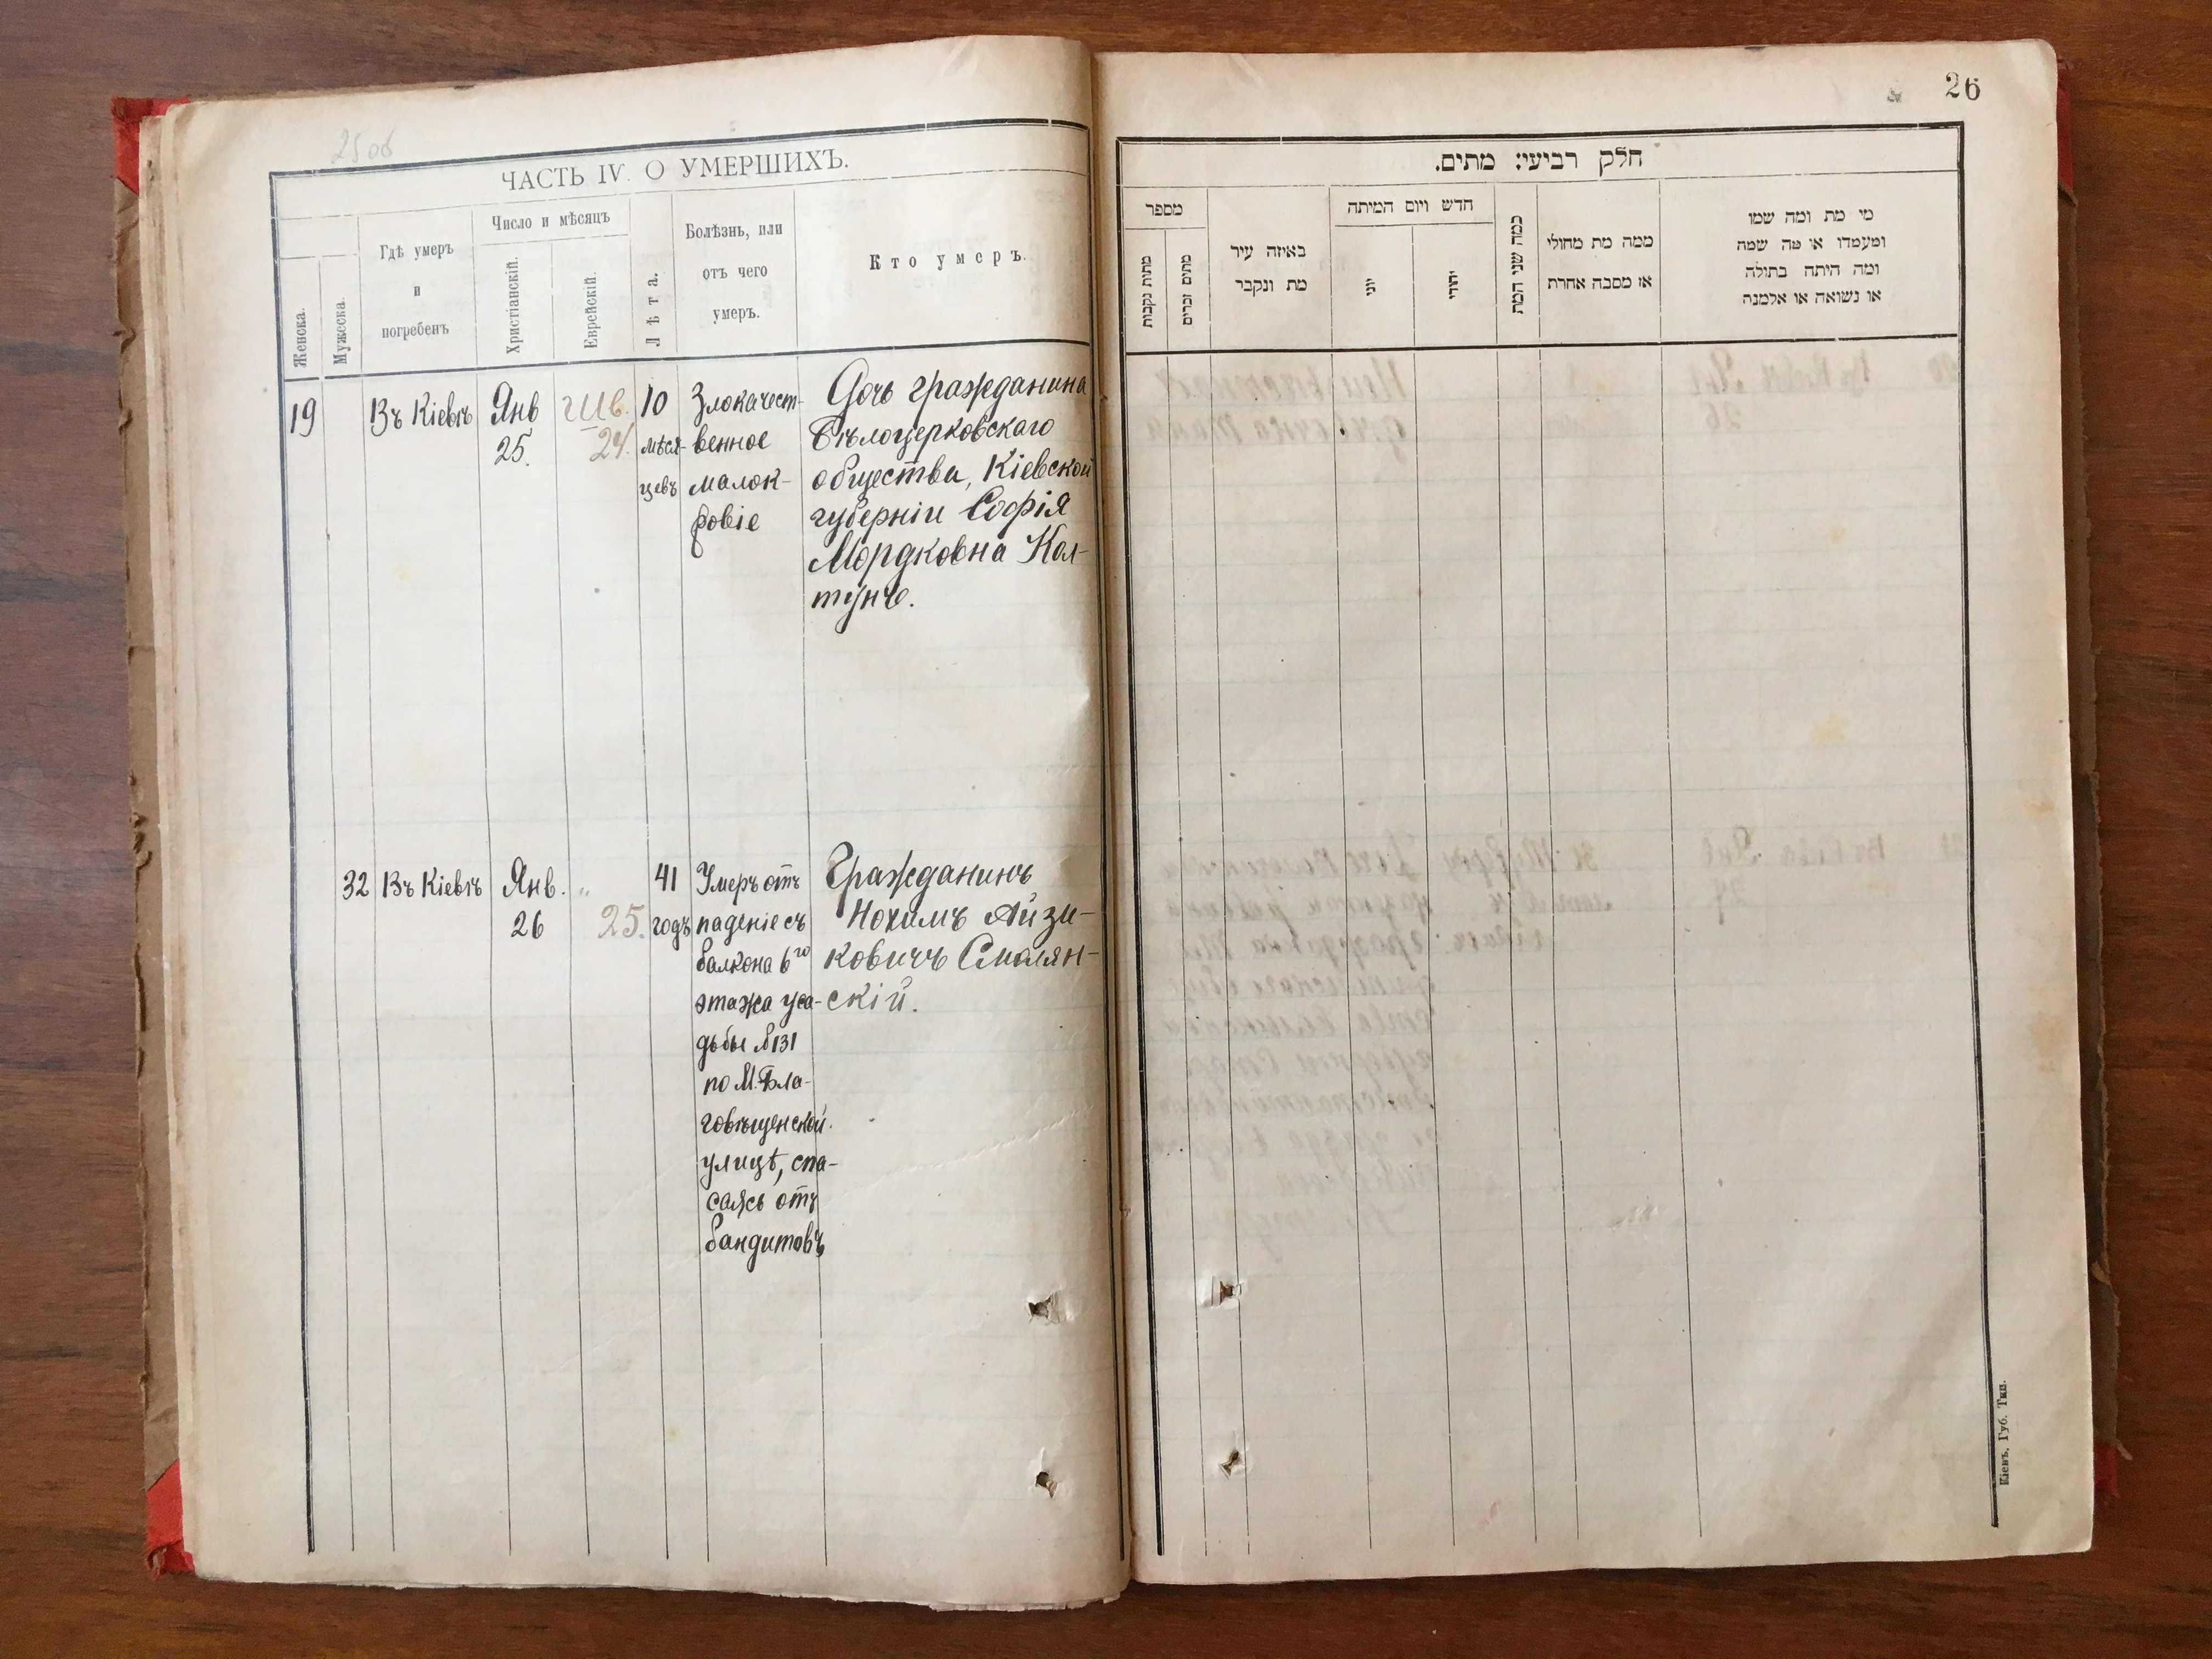 25об
ЧАСТЬ IV. О УМЕРШИХЪ.
Женска.
Мужеска.
Гдѣ умеръ
и
погребенъ
Число и мѣсяцъ
Христіанскій.
Еврейскій.
Лѣта.
Болѣзнь, или
отъ чего
умеръ.
Кто умеръ.
19
Въ Кіевѣ
Янв
25.
24.
10
мѣся-
цевъ
Злокачест-
венное
малок-
ровіе
Дочь гражданина
Бѣлоцерковскаго
общества, Кіевской
губерніи Софія
Мордковна Кол-
тунъ.
32
Въ Кіевѣ
Янв.
26
"
25.
41
годъ
Умеръ отъ
паденіе съ
балкона 6го
этажа уса-
дьбы №131
по М. Бла-
говѣщенской
улицѣ, спа-
саясь отъ
бандитовъ
Гражданинъ
Нохимъ Айзи-
ковичъ Смолян-
скій.
26
חלק רביעי: מתים.
מספר
מתות נקבות
מתים זכרים
באיזה עיר
מת ונקבר
חדש ויום המיתה
יוני
יהודי
כמה שני המת
ממה מת מחולי
או מסבה אחרת
מי מת ומה שמו
ומעמדו או מה שמה
ומה היתה בתולה
או נשואה או אלמנה
Кіевъ, Губ. Тип.